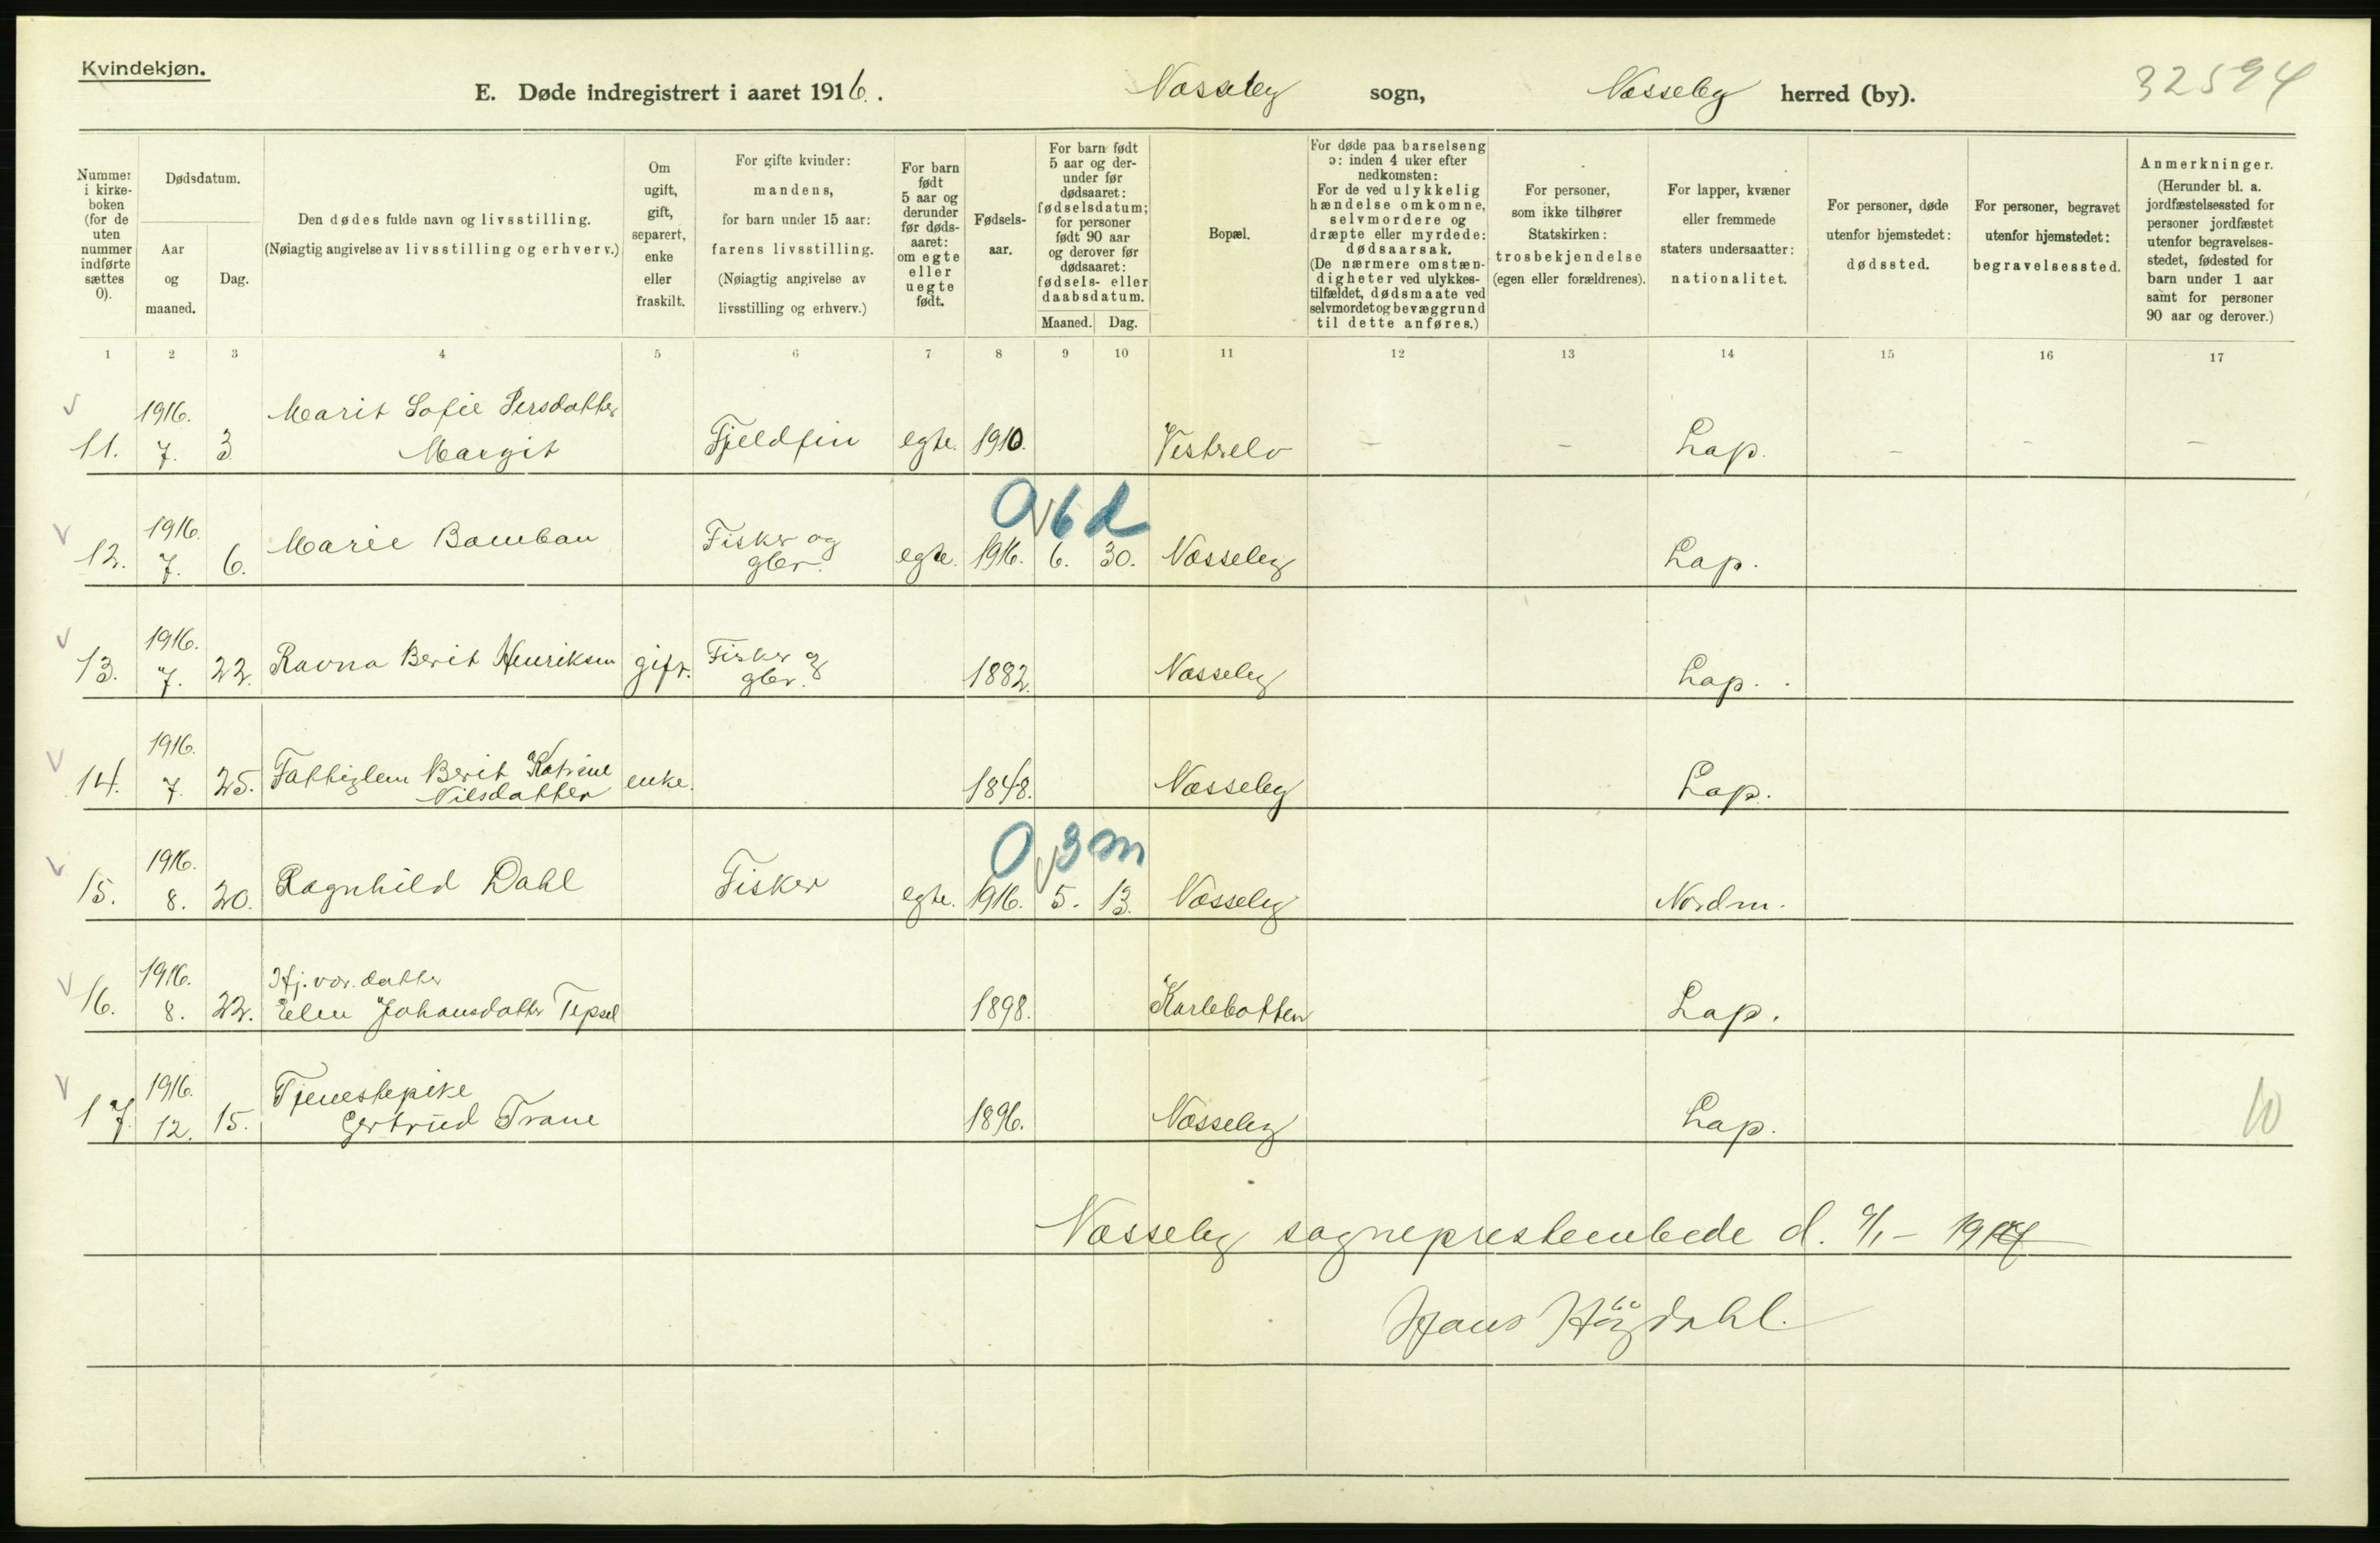 Kvindekjøn.
E. Døde indregistrert i aaret 1916.
Nesseby sogn, Nesseby herred (by).
32594
Nummer i kirkeboken (for de uten nummer indførte sættes 0).
Dødsdatum.
Aar og maaned.
Dag.
Den dødes fulde navn og livsstilling.
(Nøiagtig angivelse av livsstilling og erhverv.)
Om ugift, gift, separert, enke eller fraskilt.
For gifte kvinder: mandens, for barn under 15 aar: farens livsstilling. (Nøiagtig angivelse av livsstilling og erhverv.)
For barn født 5 aar og derunder før dødsaaret: om egte eller uegte født.
Fødselsaar.
For barn født 5 aar og derunder før dødsaaret: fødselsdatum; for personer født 90 aar og derover før dødsaaret: fødsels- eller daabsdatum.
Maaned. Dag.
Bopæl.
For døde paa barselseng ɔ: inden 4 uker efter nedkomsten: For de ved ulykkelig hændelse omkomne, selvmordere og dræpte eller myrdede: dødsaarsak. (De nærmere omstændigheter ved ulykkestilfældet, dødsmaate ved selvmordet og bevæggrund til dette anføres.)
For personer, som ikke tilhører Statskirken: trosbekjendelse (egen eller forældrenes).
For lapper, kvæner eller fremmede staters undersaatter: nationalitet.
For personer, døde utenfor hjemstedet: dødssted.
For personer, begravet utenfor hjemstedet: begravelsessted.
Anmerkninger. (Herunder bl. a. jordfæstelsessted for personer jordfæstet utenfor begravelsesstedet, fødested for barn under 1 aar samt for personer 90 aar og derover.)
1 2 3 4 5 6 7 8 9 10 11 12 13 14 15 16 17
1916. Marit Sofie Persdatter
11. 7. 3. Margit Fjeldfin egte. 1910. Vestrelv - - Lap. - - -
0 6 d
1916. Marie Bamban Fisker og
12. 7. 6. gbr. egte. 1916. 6. 30. Nesseby Lap.
1916. Fisker og
13. 7. 22. Ravna Berit Henriksen gift. gbr. 1882. Nesseby Lap.
1916. Fattiglem Berit Katrine
14. 7. 25. Nilsdatter enke. 1848. Nesseby Lap.
0 3 m
1916.
15. 8. 20. Ragnhild Dahl Fisker egte. 1916. 5. 13. Nesseby Nordm.
1916. Hj. vær. datter
16. 8. 22. Elen Johansdatter Tepsel 1898. Karlebotten Lap.
1916. Tjenestepike
17. 12. 15. Gertrud Trane 1896. Nesseby Lap. 10
Nesseby sogneprestembede d. 1917
Hans Høgdahl.